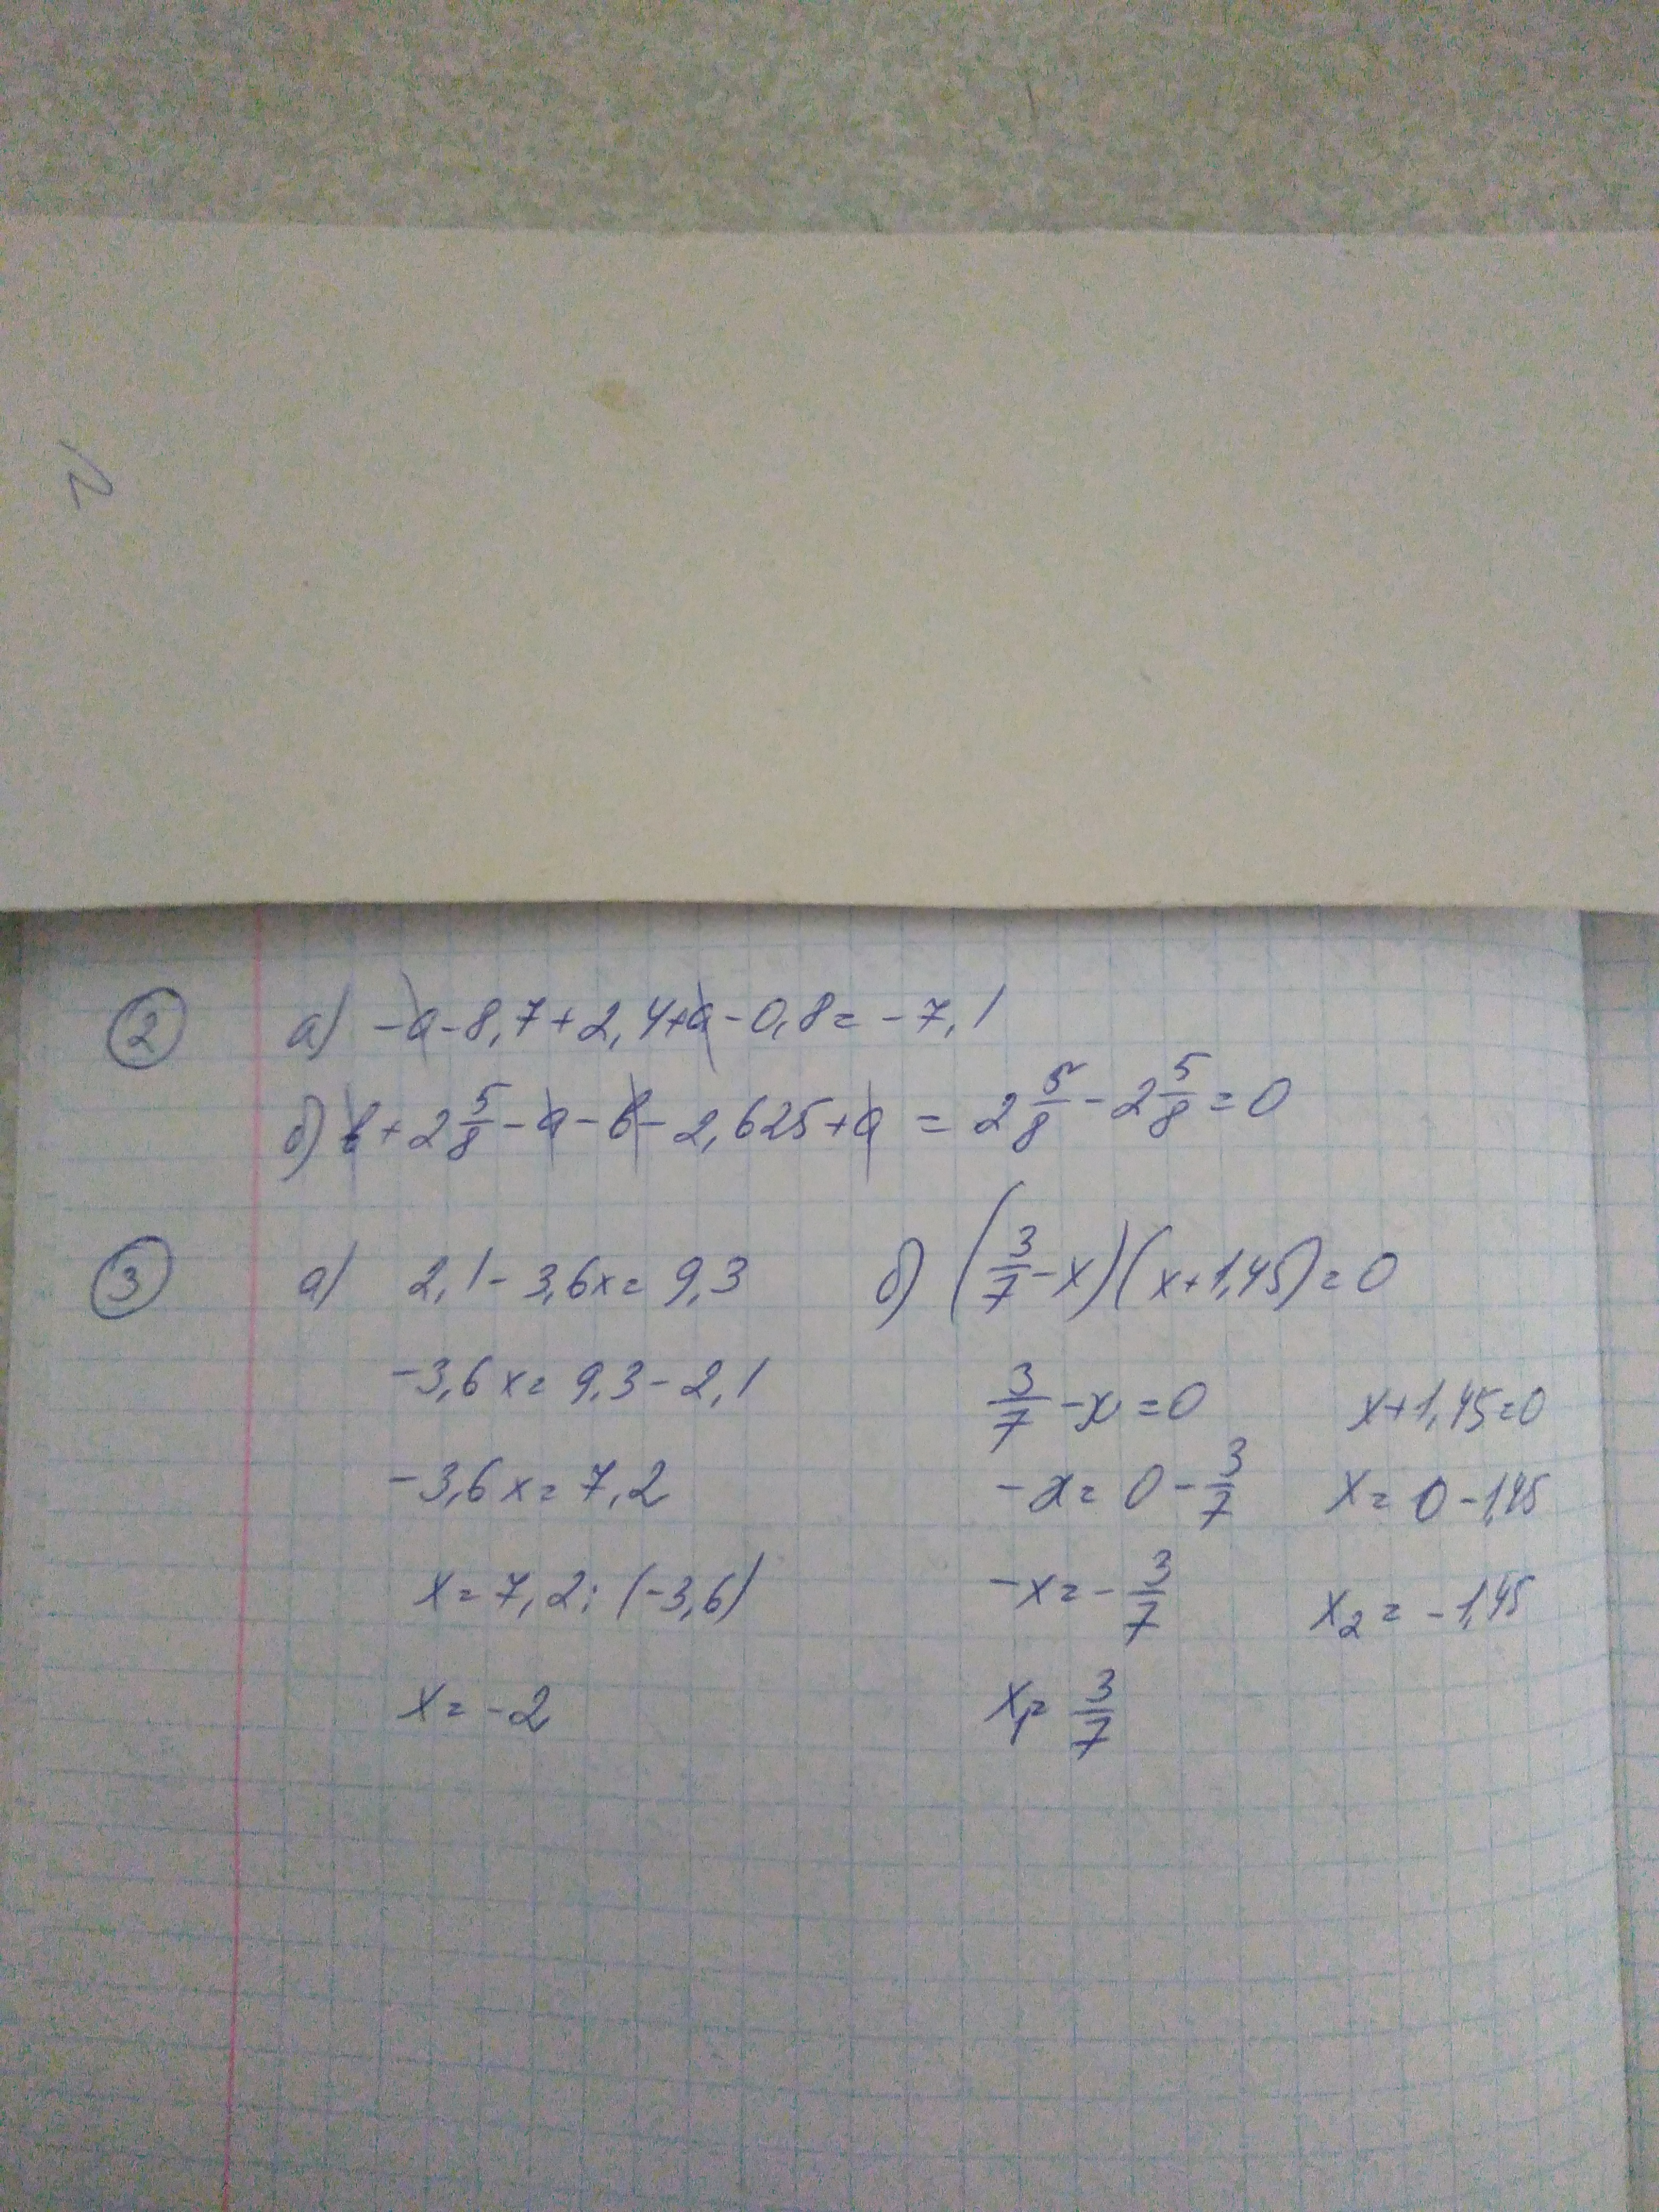 N
② а) -a-8,7+2,4+a-0,8=-7,1
б) b+2 5/8-a-b-2,625+a = 2 5/8-2 5/8=0
③ а) 2,1-3,6x=9,3
-3,6x=9,3-2,1
-3,6x=7,2
x=7,2:(-3,6)
x=-2
б) (3/7-x)(x+1,45)=0
3/7-x=0
-x=0-3/7
-x=-3/7
x₁=3/7
x+1,45=0
x=0-1,45
x₂=-1,45